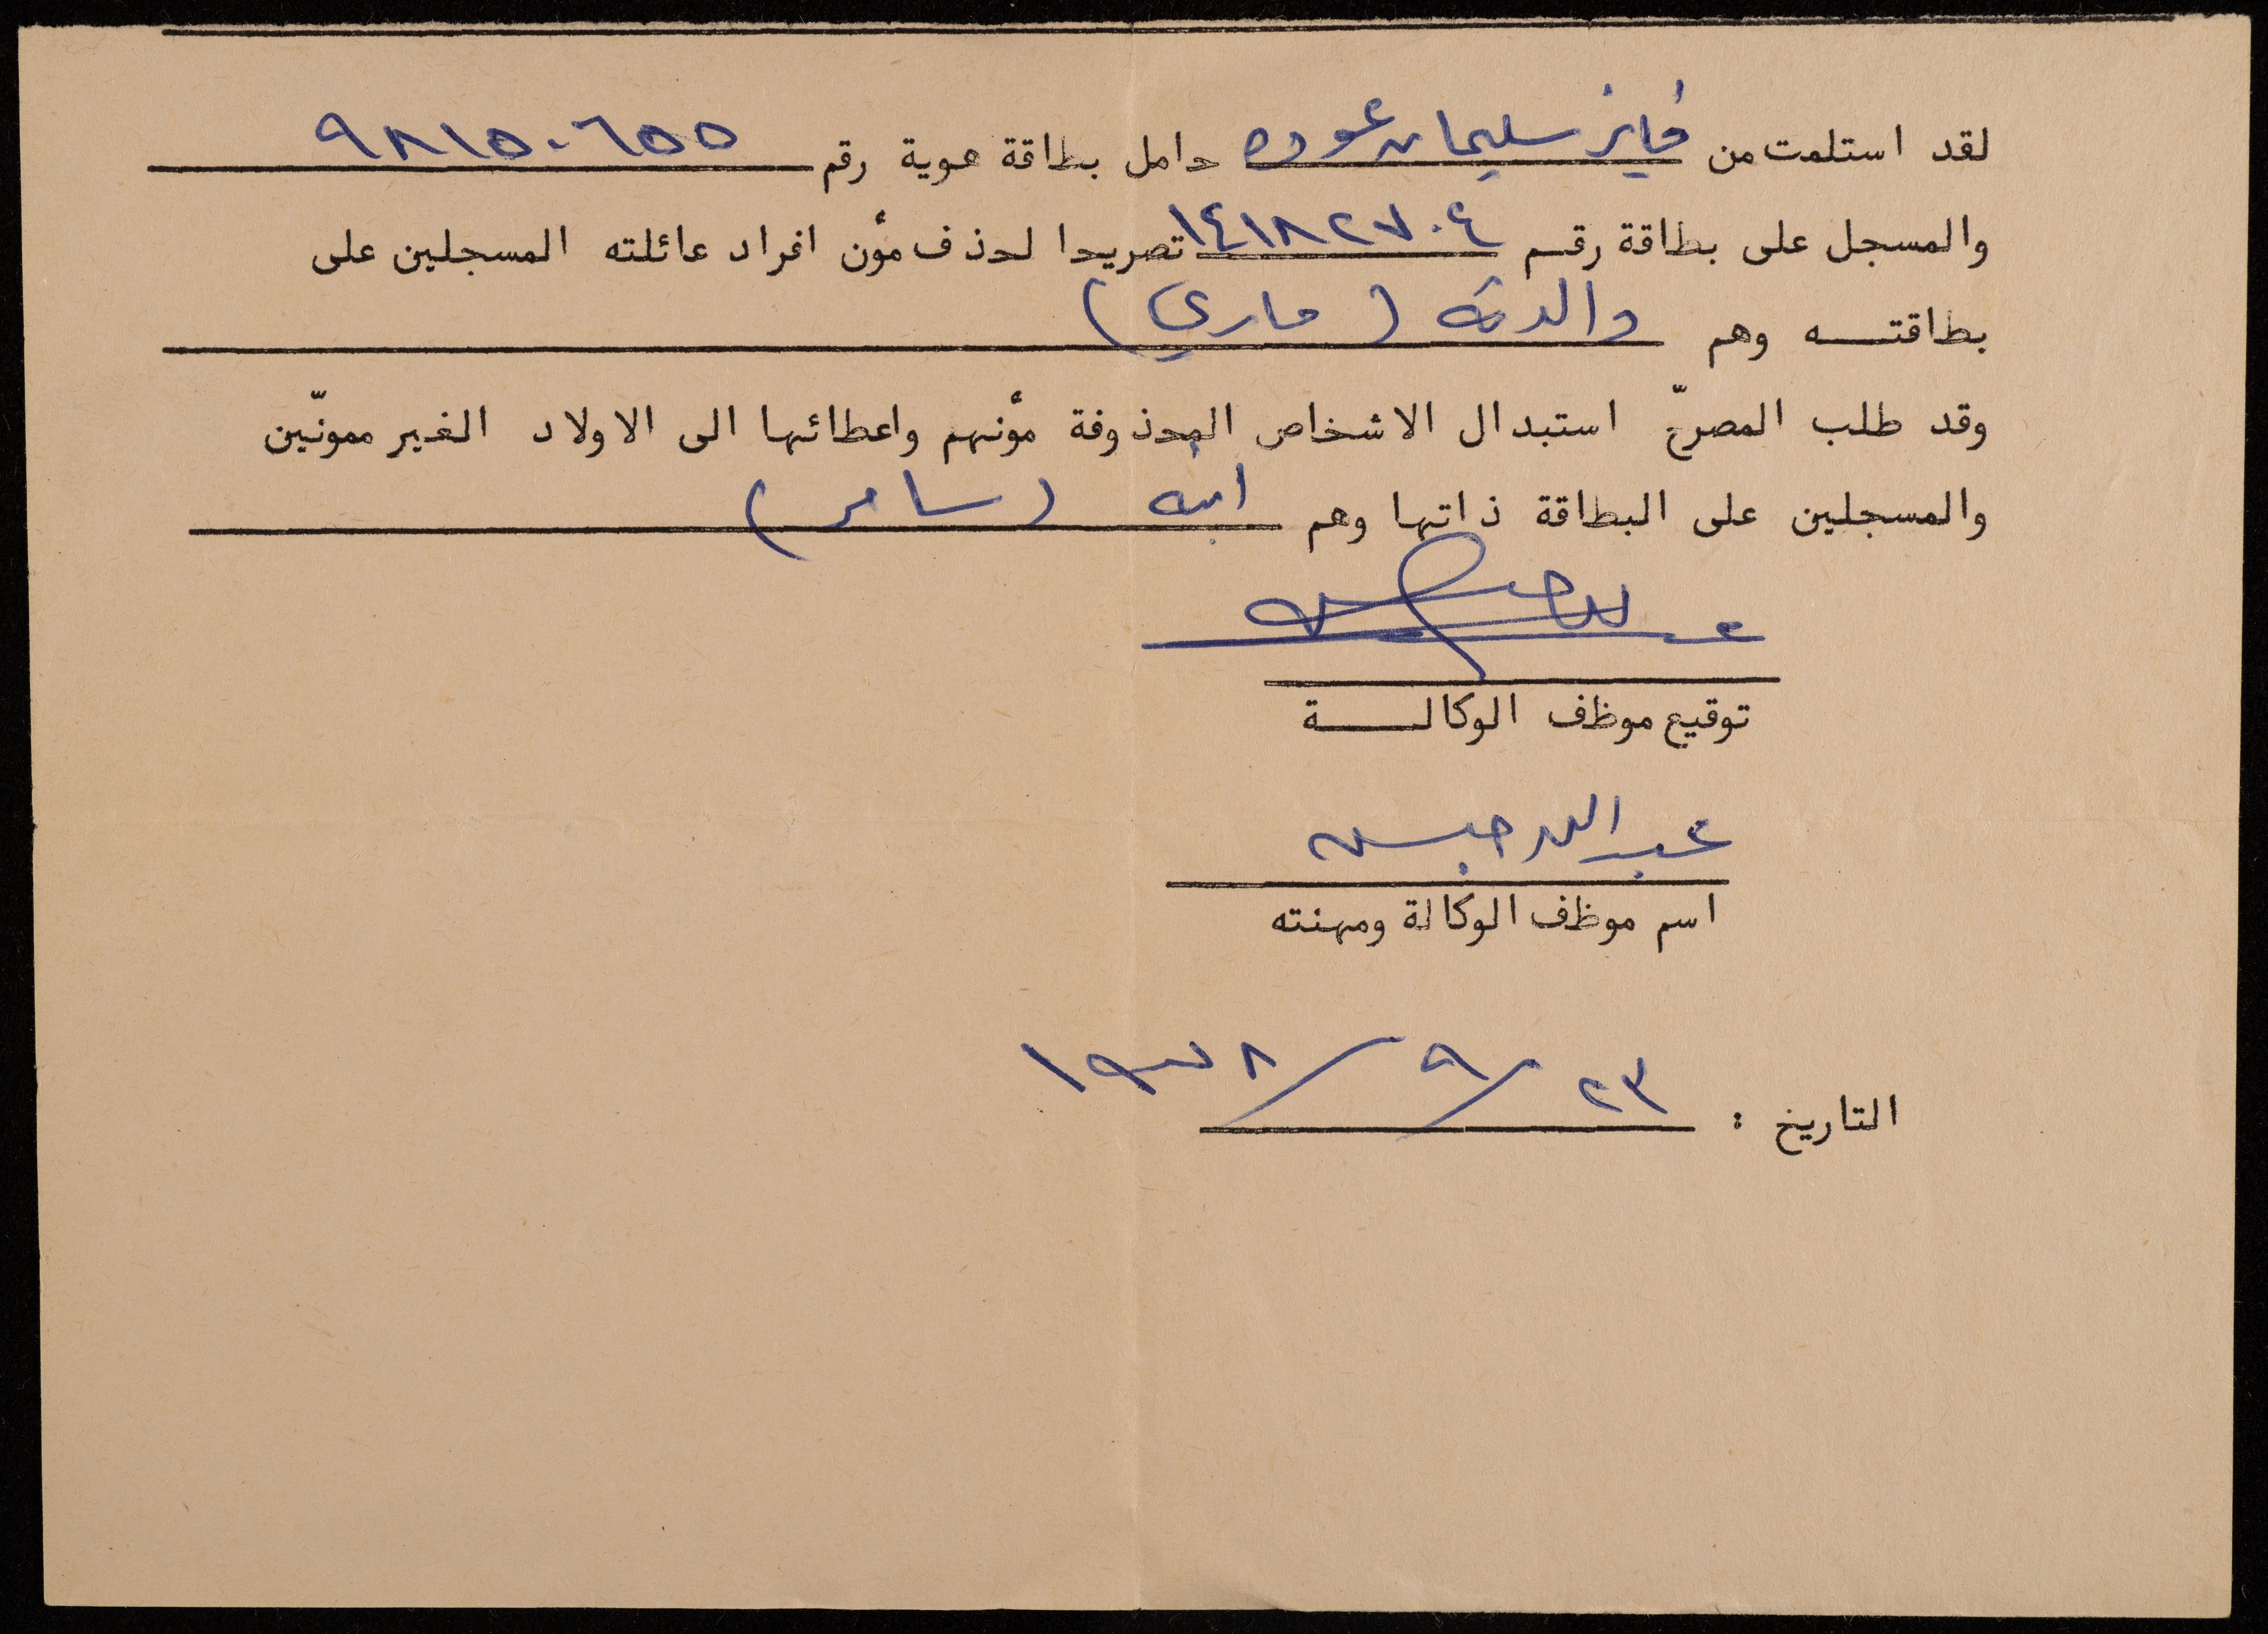 لقد استلمت من فايز سليمان عوده حامل بطاقة هوية رقم ٩٨١٥٠٦٥٥
والمسجل على بطاقة رقم ١٤١٨٢٧٠٤ تصريحا لحذف مؤن افراد عائلته المسجلين على
بطاقتـــه وهم والدته (ماري)
وقد طلب المصرّح استبدال الاشخاص المحذوفة مؤنهم واعطائها الى الاولاد الغير ممونّين
والمسجلين على البطاقة ذاتها وهم ابنه (سامر)
توقيع موظف الوكالـــــة
عبد الله حبس
اسم موظف الوكالة ومهنته
التاريخ : ٢٣/٩/١٩٧٨